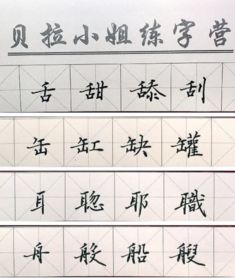 贝拉小姐练字营
舌甜舔刮
缶缸缺罐
耳聪耶職
舟般船艘